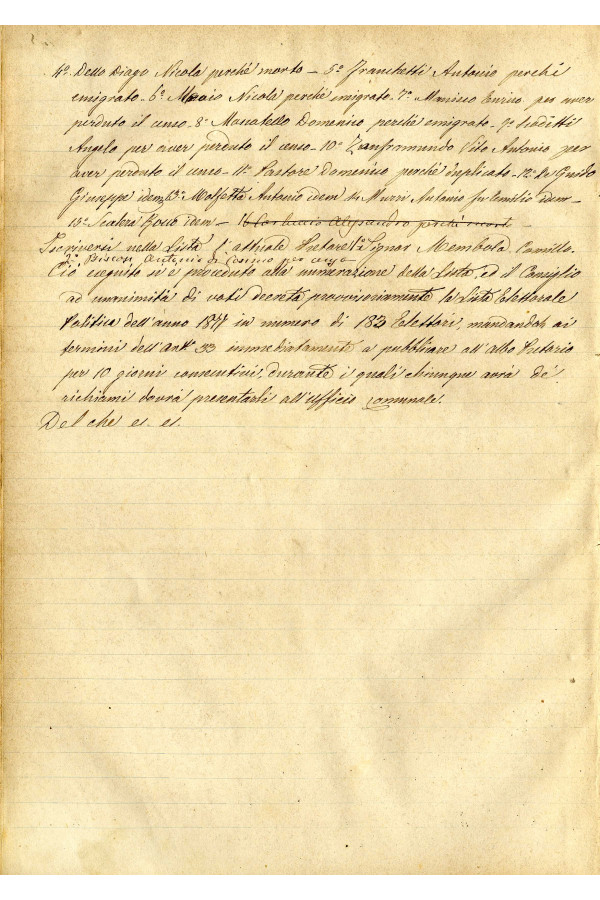 4º. Dello Diago Nicola perché morto – 5º Franchetti Antonio perché
emigrato – 6º Maio Nicola perché emigrato – 7º Manisco Enrico per aver
perduto il censo – 8º Massatello Domenico perché emigrato – 9º
Angelo per aver perduto il censo – 10º Zanframundo Vito Antonio per
aver perduto il censo – 11º Pastore Domenico perché inplicato – 12º De Guido
Giuseppe idem 13º Molfetta Antonio idem 14 Murri Antonio fu Emilio idem –
15º Scalera Rocco idem – 16 Alessandro perché morto
Iscriversi nella Lista l'attuale Pretore 1º Signor Membola Camillo.
2º Antonio di Cosimo per censo
Ciò eseguito si è proceduto alla numerazione della Lista, ed il Consiglio
ad unanimità di voti decreta provvisoriamente la Lista Elettorale
Politica dell'anno 1877 in numero di 183 Elettori, mandandola ai
termini dell'art: 33 immediatamente a pubblicare all'albo Pretorio
per 10 giorni consecutivi, durante i quali chiunque avrà de'
richiami dovrà presentarli all'ufficio Comunale.
Del che es. es.